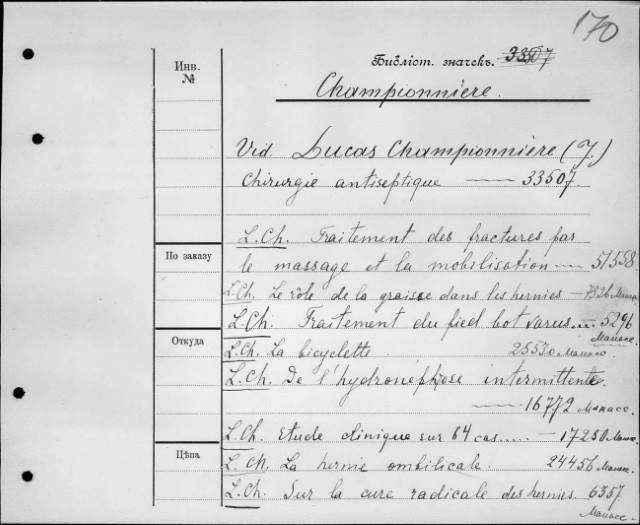 170
Инв.
№
Библіот. значекъ. 33507
Championnière.
Vid. Lucas Championnière (J.)
Chirurgie antiseptique — 33507.
L. Ch. Traitement des fractures par
По заказу
le massage et la mobilisation — 51558
L. Ch. Le rôle de la graisse dans les hernies
L. Ch. Traitement du pied bot varus... — 5296
Манасс.
Откуда
L. Ch. La bicyclette. 25530 Манасс.
L. Ch. De l'hydronéphrose intermittente
— 16772 Манасс.
L. Ch. Etude clinique sur 64 cas..... — 17250 Манас.
Цѣна
L. Ch. La hernie ombilicale. 24456 Манасс.
L. Ch. Sur la cure radicale des hernies. 6357
Манасс.